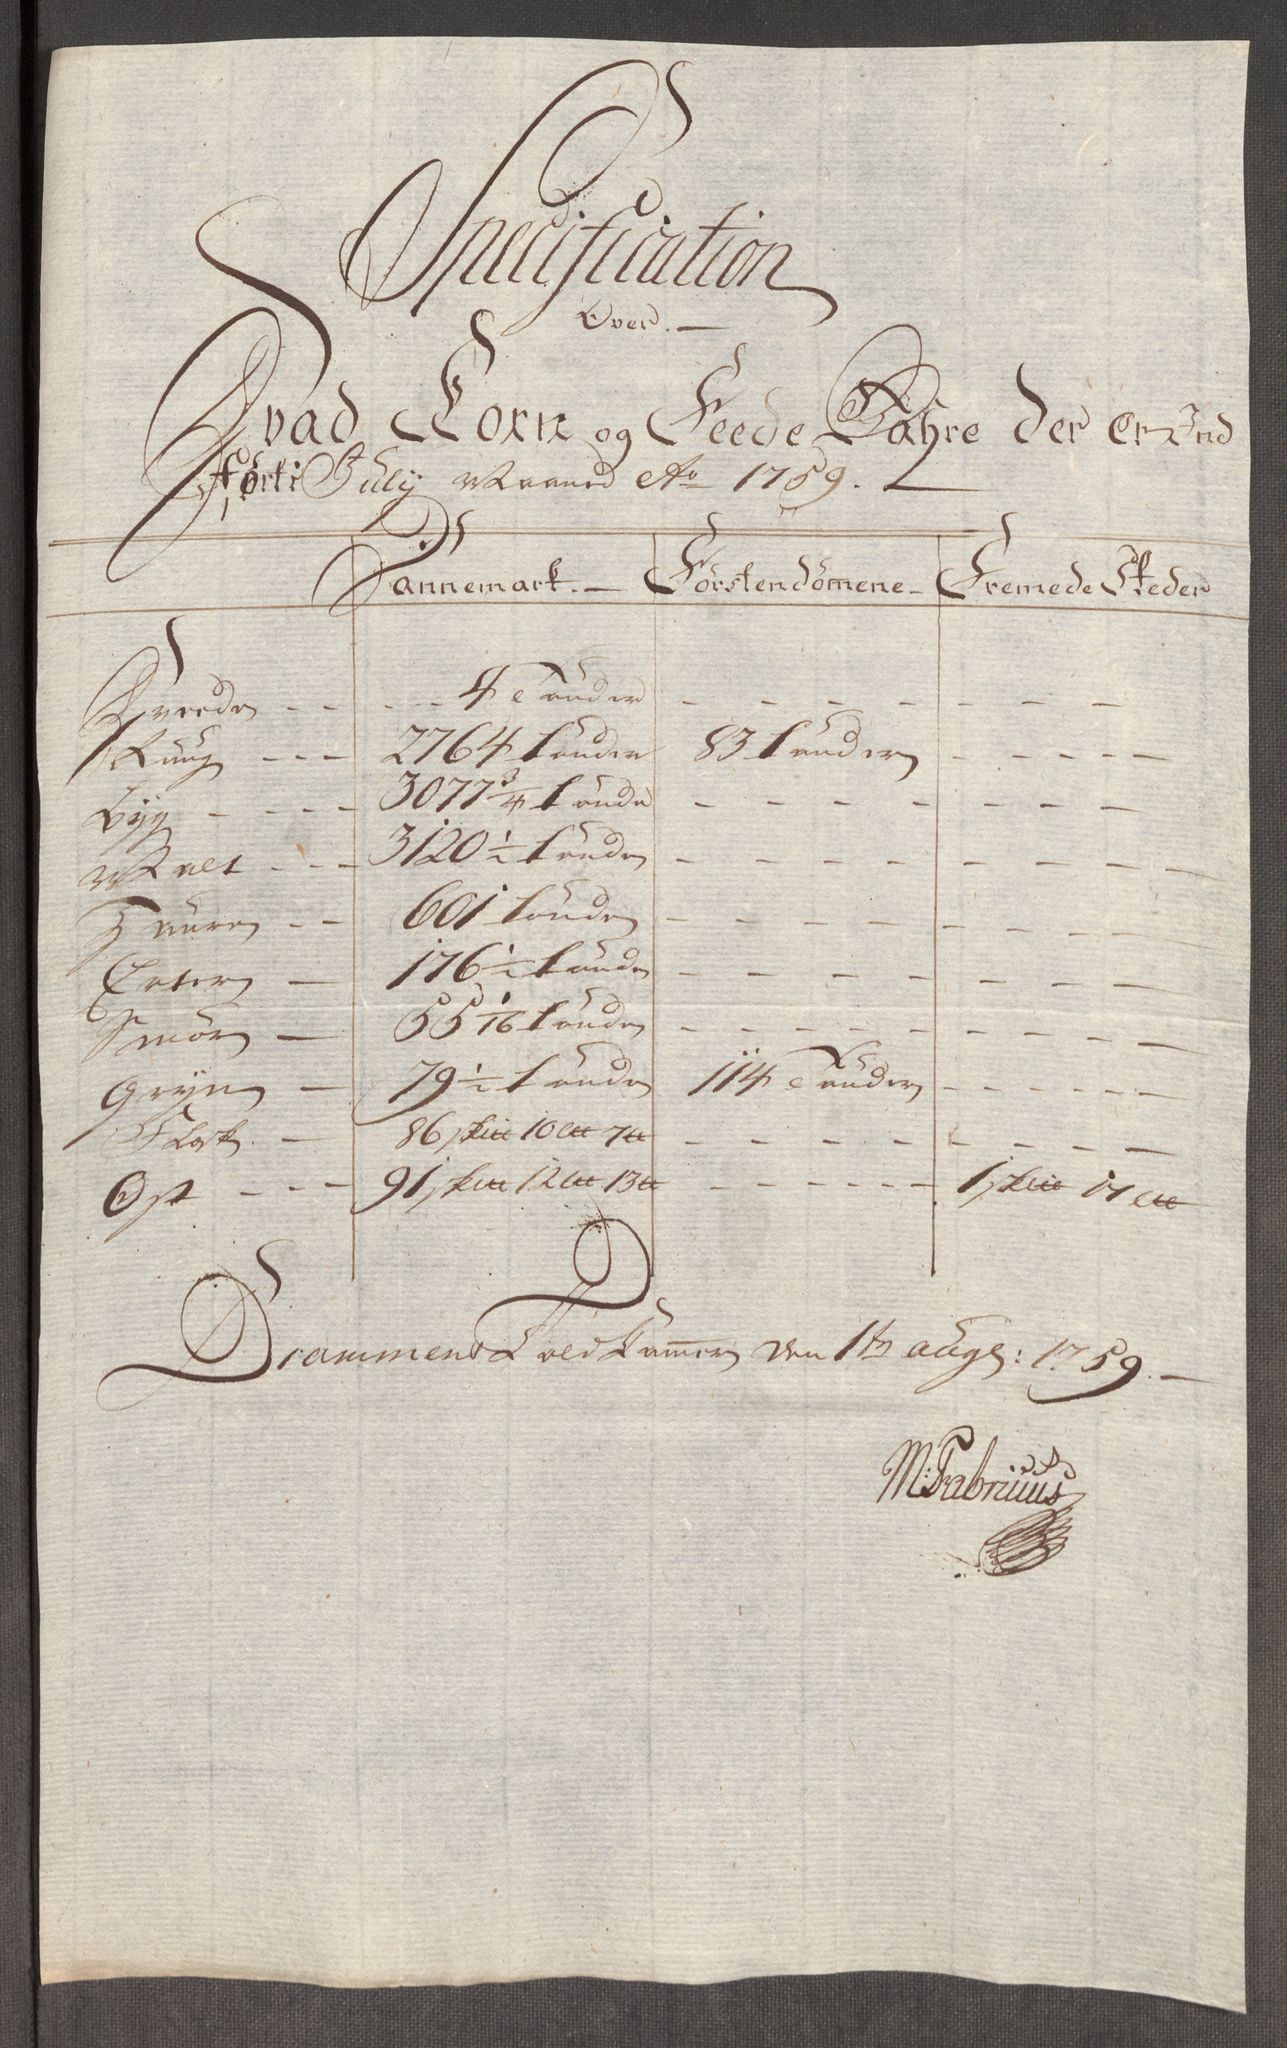 Specification
Over.
Hvad Korn og Feede Vahre der er Ind
ført i July Maaned Ao 1759.
Dannemark. Förstendömene Fremede Steder
Hveede - - - - - 4 Tönder - - - - - - - -
Rüug - - - 2764 tönder 83 tönder - - - - -
Byg - - - - 3077 3/4 tönder - - - - - - - -
Malt - - - 3120 1/2 tönder - - - - - - - -
Haure - - 601 tönder - - - - - - - -
Erter - 176 1/2 tönder - - - - - - - -
Smör - 55 1/16 tönder - - - - - - - -
Gryn - 79 1/2 tönder 114 Tönder - - - - -
Flesk - 86 sk℔ 10 l℔ 7 ℔ - - - - - - - -
Ost - - - 91 sk℔ 12 l℔ 13 ℔ - - - - - - 1 sk℔ 17 l℔
Drammens Toldkammer den 1ten augs: 1759.
M: Fabricius